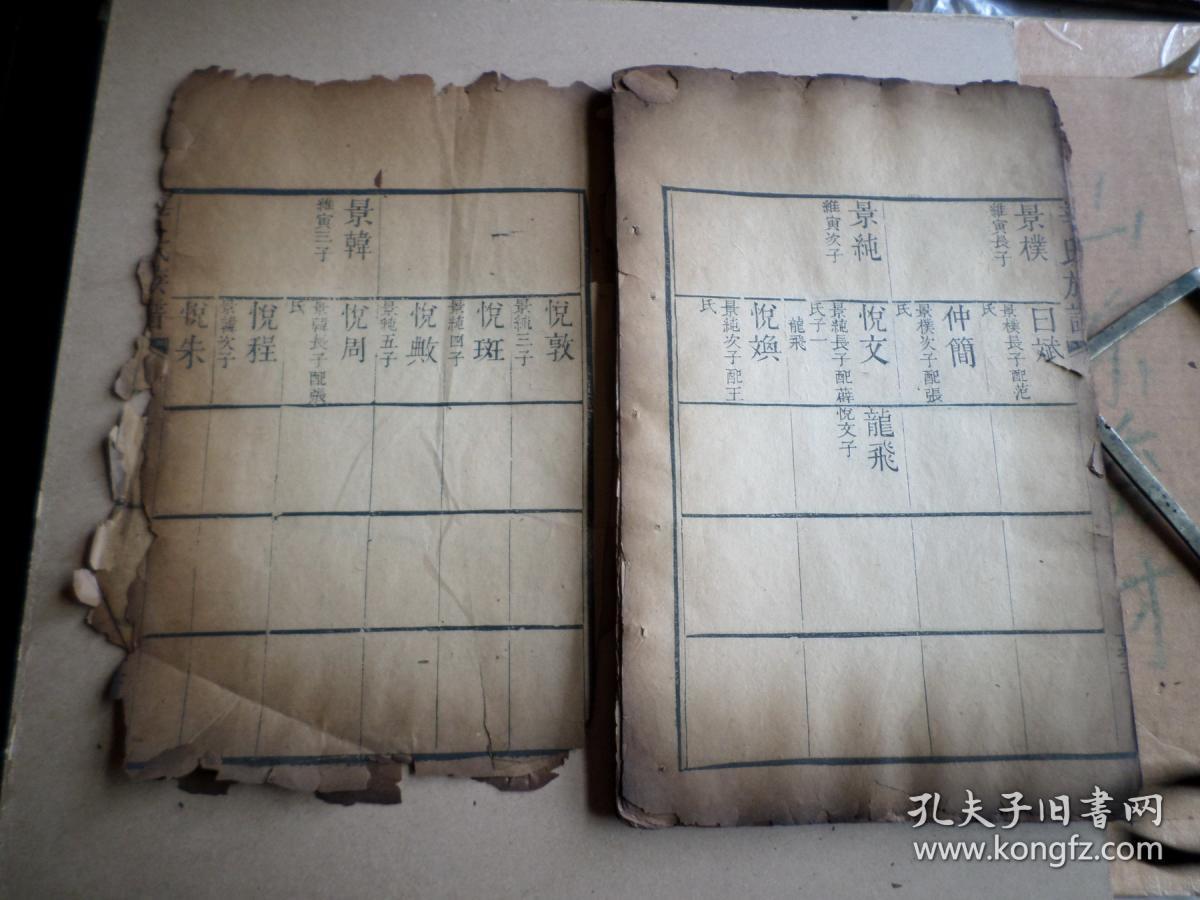 景樸
維寅長子
景純
維寅次子
曰斌
景樸長子配范
氏
仲簡
景樸次子配張
氏
悅文
景純長子配薜
氏子一
龍飛
悅煥
景純次子配王
氏
龍飛
悅文子
景韓
維寅三子
悅敦
景純三子
悅斑
景純四子
悅
景純五子
悅周
景韓長子配張
氏
悅程
景韓次子
悅朱
孔夫子旧书网
www.kongfz.com